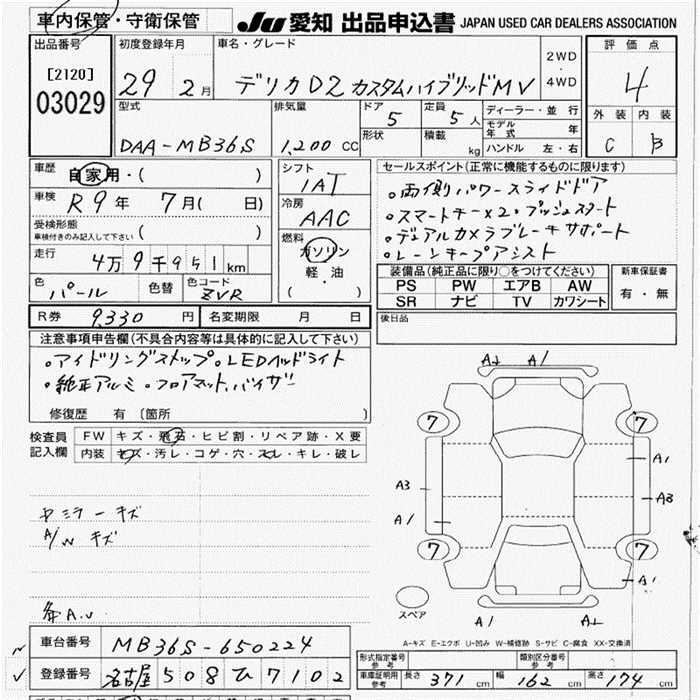 車内保管・守衛保管 JU 愛知 出品申込書 JAPAN USED CAR DEALERS ASSOCIATION
出品番号 初度登録年月 車名・グレード 評価点
[2120] 2WD
03029 29 2月 デリカD2 カスタムハイブリッドMV 4WD 4
型式 排気量 ドア 定員 ディーラー・並行 外装 内装
5 5人 モデル年式 年
DAA-MB36S 1,200 CC 形状 積載 kg ハンドル 左・右 C B
車歴 自家用・( ) シフト セールスポイント(正常に機能するものに限ります)
1AT 。両側パワースライドドア
車検 R9年 7月( 日) 冷房 。スマートキー×2。プッシュスタート
受検形態 AAC 。デュアルカメラブレーキサポート
車検付きのみ記入して下さい ( ) 燃料 。レーンキープアシスト
走行 4万9千951km ガソリン 装備品(純正品に限り〇をつけてください) 新車保証書
色 パール 色替 色コード ZVR 軽・油 PS PW エアB AW 有・無
( ) SR ナビ TV カワシート
R券 9,330円 名変期限 月 日 後日品
注意事項申告欄(不具合内容等は具体的に記入して下さい)
。アイドリングストップ。LEDヘッドライト
。純正アルミ。フロアマット、バイザー
修復歴 有(箇所 )
検査員 FW キズ・飛石・ヒビ割・リペア跡・X要
記入欄 内装 キズ・汚レ・コゲ・穴・スレ・キレ・破レ
A1
7 7
A1
A3 A3
ミラーキズ
A1
A/W キズ
7 7
A1
スペア
A1
A-キズ E-エクボ U-凹み W-補修跡 S-サビ C-腐食 XX-交換済
車台番号 MB36S-650224
形式指定番号 参考 類別区分番号 参考
登録番号 名古屋 508 ひ 7102
車庫証明用 参考 長さ 371 cm 幅 162 cm 高さ 174 cm